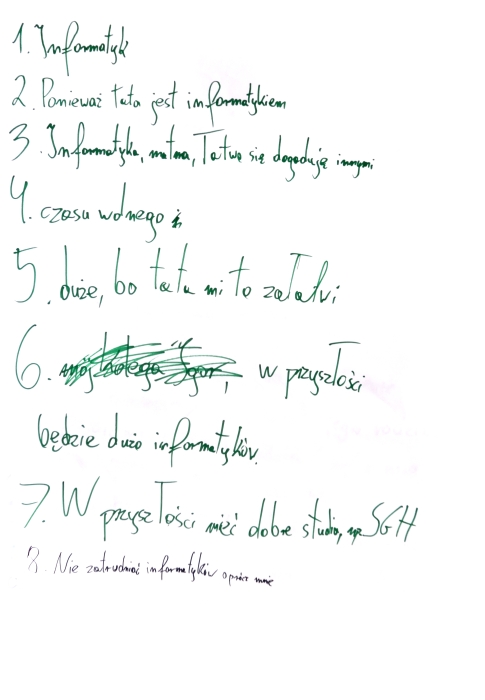 1. Informatyk
2. Ponieważ tata jest informatykiem
3. Informatyka, matma, Łatwo się dogaduję innymi
4. czasu wolnego
5. duże, bo tata mi to załatwi
6. mój kolega Igor, w przyszłości
będzie dużo informatyków.
7. W przyszłości mieć dobre studia, np. SGH
8. Nie zatrudniać informatyków oprócz mnie